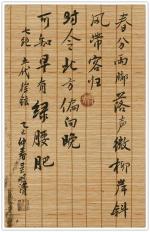 春分雨脚落声微柳岸斜
风带客归
时令北方偏向晚
可知早有绿腰肥
七绝 五代徐铉
仲春